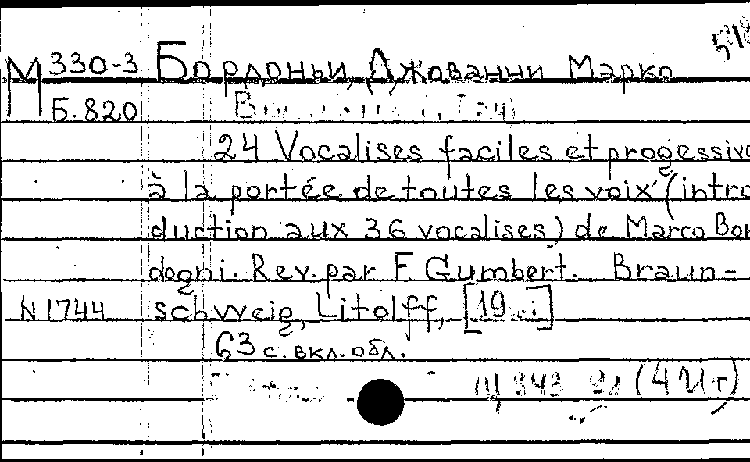 М 330-3 Бордоньи, Джованни Марко
Б.820
24 Vocalises faciles et progessive
à la portée de toutes les voix (intro
duction aux 36 vocalises) de Marco Bor
dogni. Rev. par F. Gumbert. Braun-
N 1744 schweig, Litolff, [19
63 с. вкл. обл.